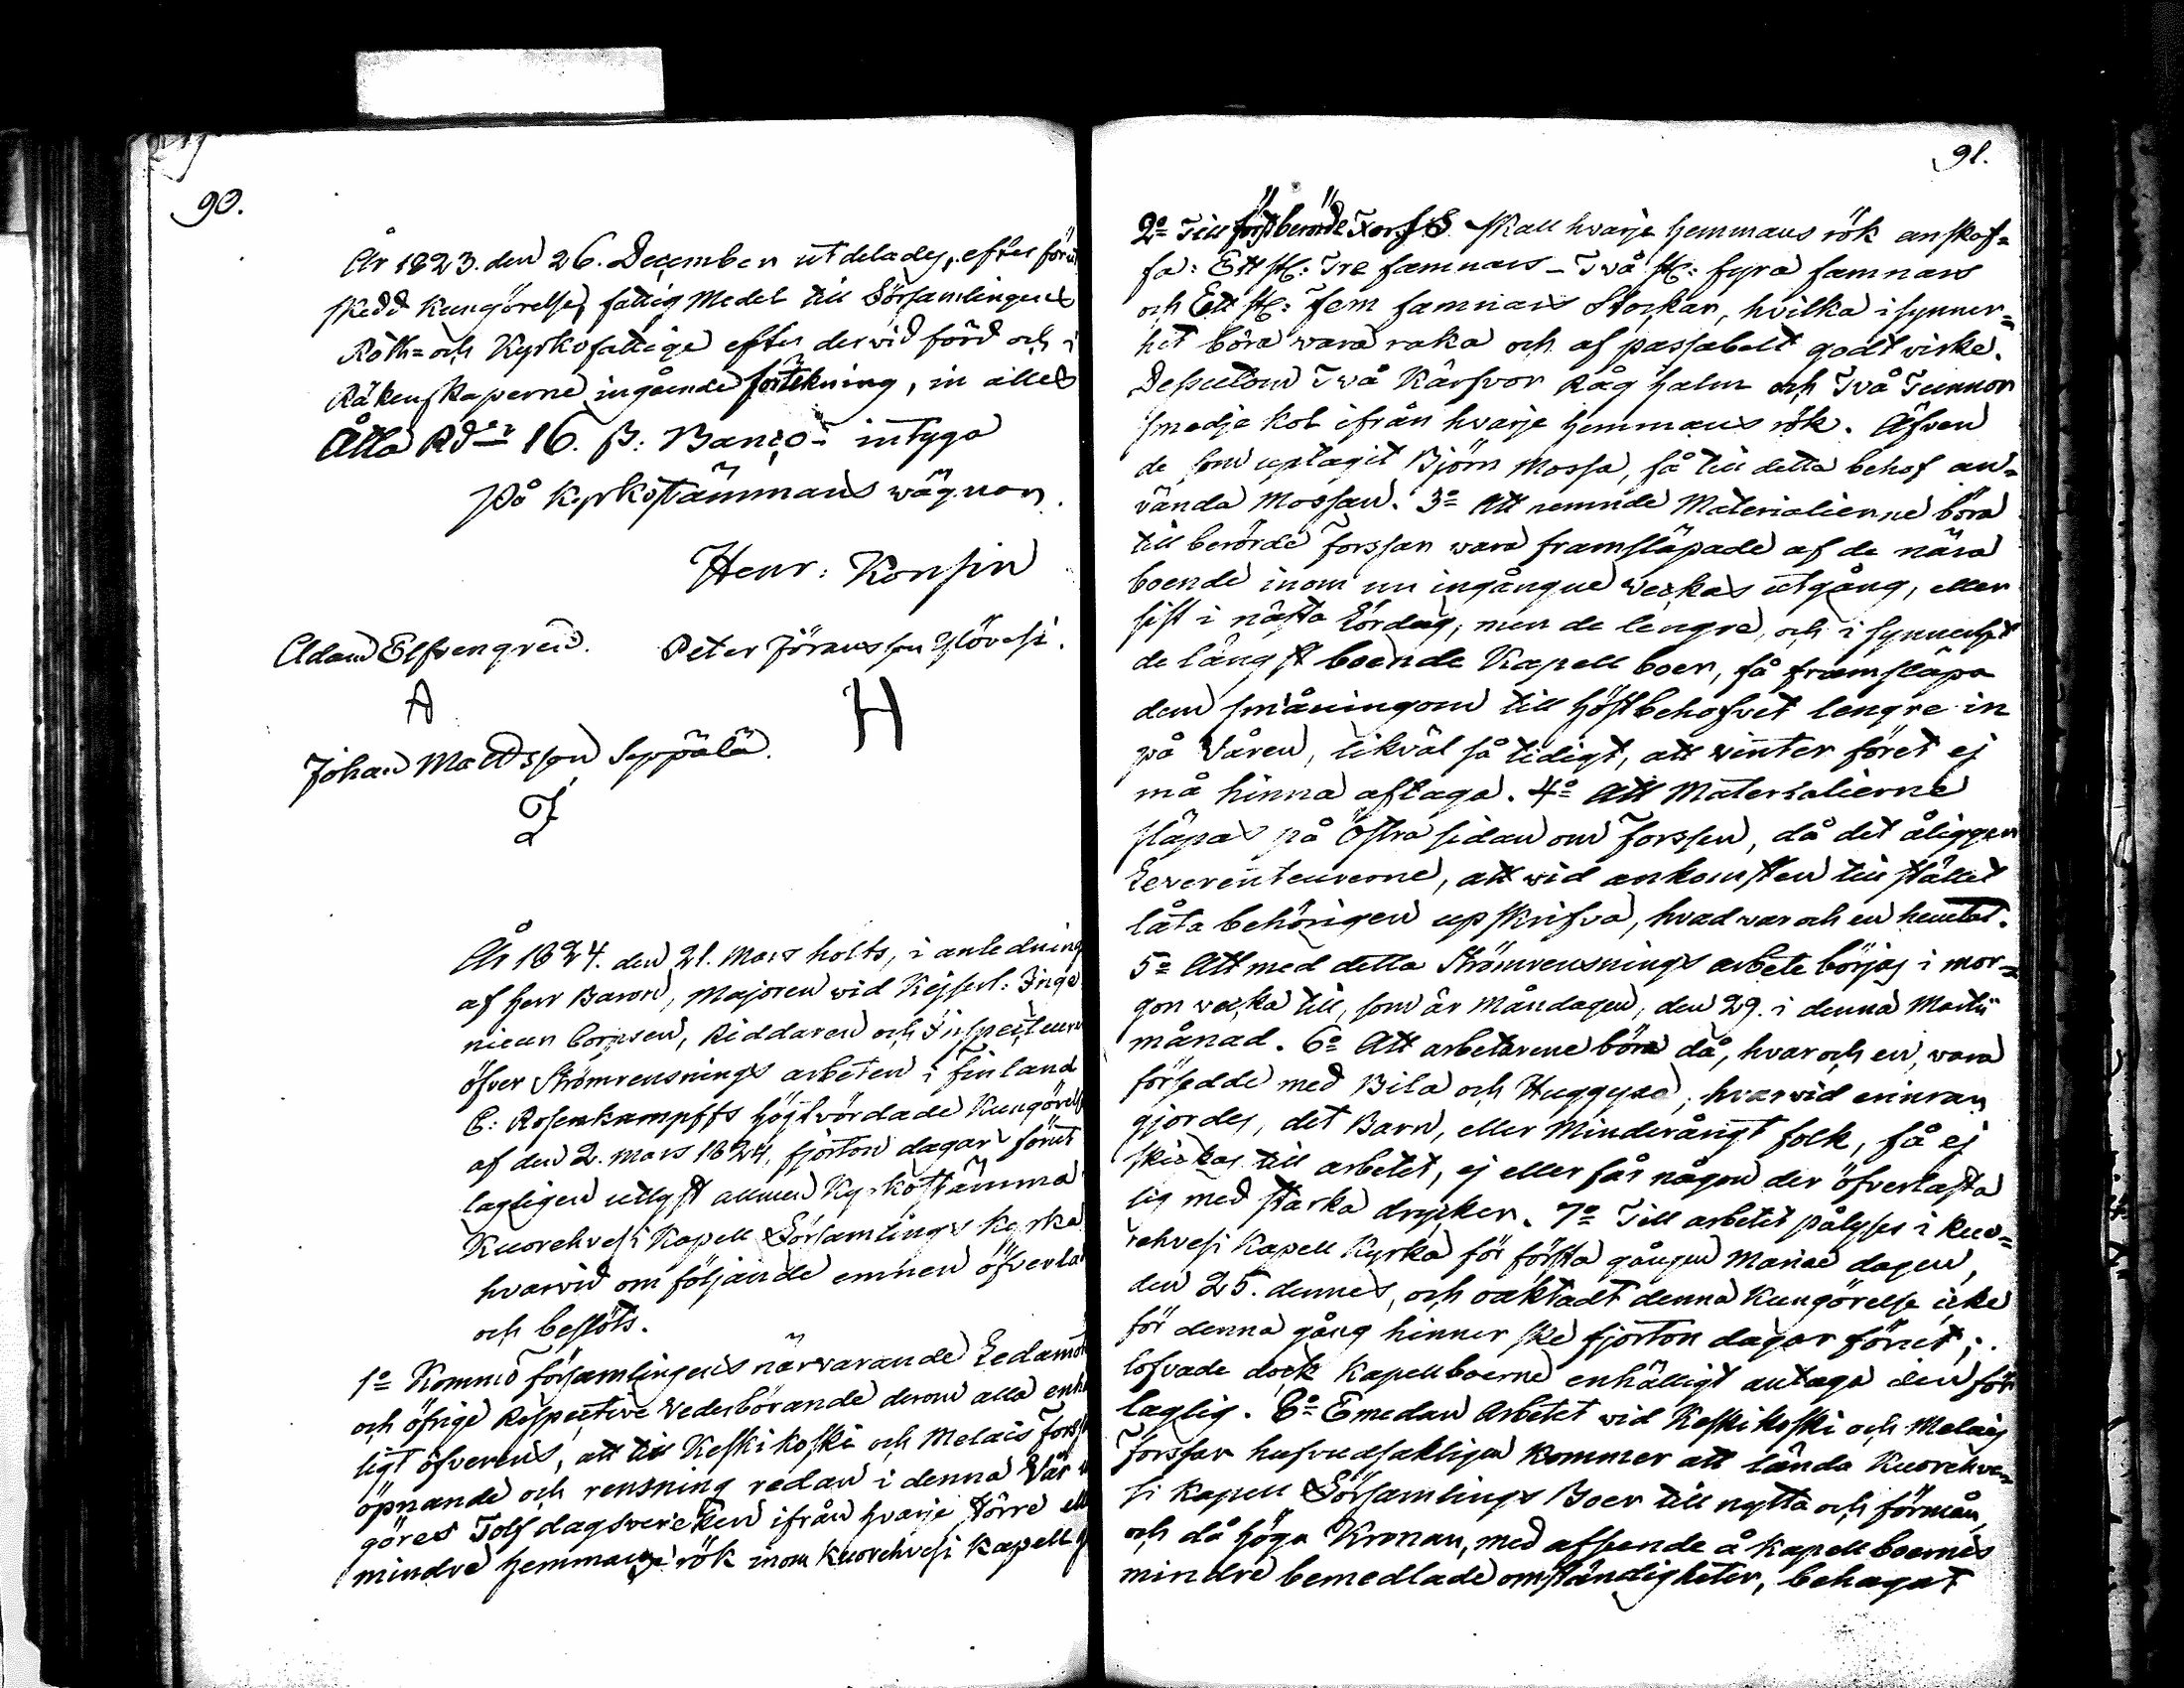 90.
År 1823. den 26. December utdelades, efter förut
skedd Kungörelse, fattig Medel till Församlingens
Roth= och Kyrkofattige efter dervid förd och i
Räkenskaperne ingående förtekning, in alles
Åtta Rdr 16. ß: Banco - intyga
På Kyrkostämmans wägnar.
Henr: Konsin
Adam Elfvengren. Peter Jöransson
A H
Johan Mattsson Seppälä.
År 1824. den 21. Mars holts, i anledning
af Herr Baron, Majoren wid Kejserl: Inge
nieur Corpsen, Riddaren och Inspecteuren
öfver Strömrensnings arbeten i Finland
C: Rosenkampffs högtvördade Kungörelse
af den 2. Mars 1824, fjorton dagar förut
lagligen utlyst allmen Kyrkostämma
Kuorehvesi Kapell Församlings Kyrka
hvarvid om följande emnen öfverla
och beslöts.
1o Kommo församlingens närvarande Ledamöt
och öfrige Respective Vederbörande derom alla enhä
ligt öfverens, att till Keskikoski och Melais Forss
öpnande och rensning redan i denna Vår
göres Tolf dagsvereken ifrån hvarje större ell
mindre hemmans rök inom Kuorehvesi Kapell
91.
2o Till förstberörde Forss skall hvarje hemmans rök anskof=
fa: Ett st: Tre famnars - Två st: fyra famnars
och Ett st: Fem famnars Stockar, hvilka i synner=
het böra wara raka och af passabelt godt virke.
Dessutom Två Kärfvor Råg halm och Två Tunnor
smedje kol ifrån hvarje hemmans rök. Äfven
de som uptagit Björn Mossa, få till detta behof an=
vända Mossan. 3o Att nemnde Materialierne böra
till berörde forssar wara framsläpade af de nära
boende inom nu ingångne Weckas utgång, eller
sist i nästa Lördag, men de lengre, och i synnerhet
de längst boende Kapell boer, få framsläpa
dem småningom till höstbehofvet lengre in
på Våren, likväl så tidigt, att winter föret ej
må hinna aftaga. 4o Att Materialierne
släpas på Östra sidan om Forssen, då det åligger
Leverenteurerne, att wid ankomsten till stället
låta behörigen upskrifva, hvad war och en hemtat.
5o Att med detta Strömrensnings arbete börjas i mor=
gon wecka till, som är Måndagen, den 29. i denna Martii
månad. 6o Att arbetarene böra då, hvar och en, wara
försedde med Bila och Huggyxa, hvarwid erinran
gjordes, det Barn, eller Minderångt folk, få ej
skickas till arbetet, ej eller får någon der öfverlasta
sig med starka drycker. 7o Till arbetet pålyses i Kuo=
rehvesi Kapell Kyrka för första gången Mariae dagen,
den 25. dennes, och oaktadt denna Kungörelse icke
för denna gång hinner ske fjorton dagar förut;
lofvade dock Kapellboerne enhälligt antaga den för
laglig. 8o Emedan Arbetet wid Keskikoski och Melais
Forssar hufvudsakligen kommer att lända Kuorehve=
si Kapell Församlings Boer till nytta och förmån,
och då höga Kronan, med afseende å Kapellboernes
mindre bemedlade omständigheter, behagat